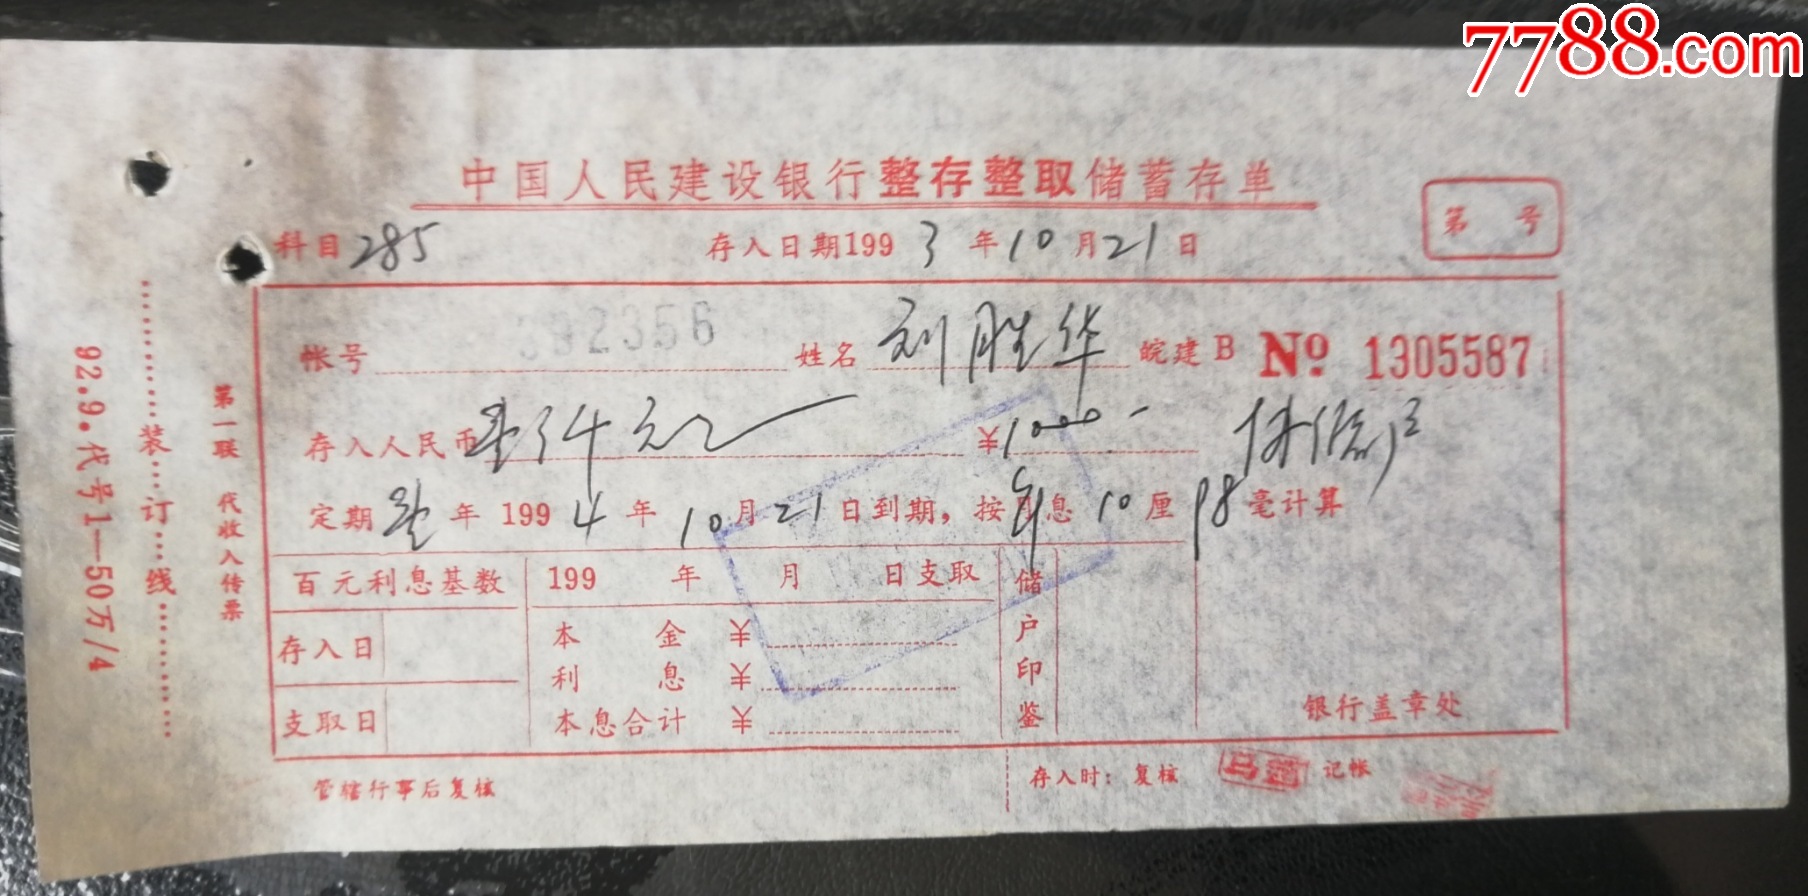 7788.com
中国人民建设银行整存整取储蓄存单
第 号
科目 285 存入日期199 3 年 10 月 21 日
帐号 392356 姓名 刘胜华 皖建 B No 1305587
存入人民币 壹仟元 ¥1000-
定期 壹 年 199 4 年 10 月 21 日到期，按 年 息 10 厘 98 毫计算
百元利息基数 199 年 月 日支取
存入日
支取日
本 金 ¥
利 息 ¥
本息合计 ¥
储户印鉴
银行盖章处
管辖行事后复核
存入时：复核 记帐
第一联 代收入传票
装订线
92.9.代号1—50万/4